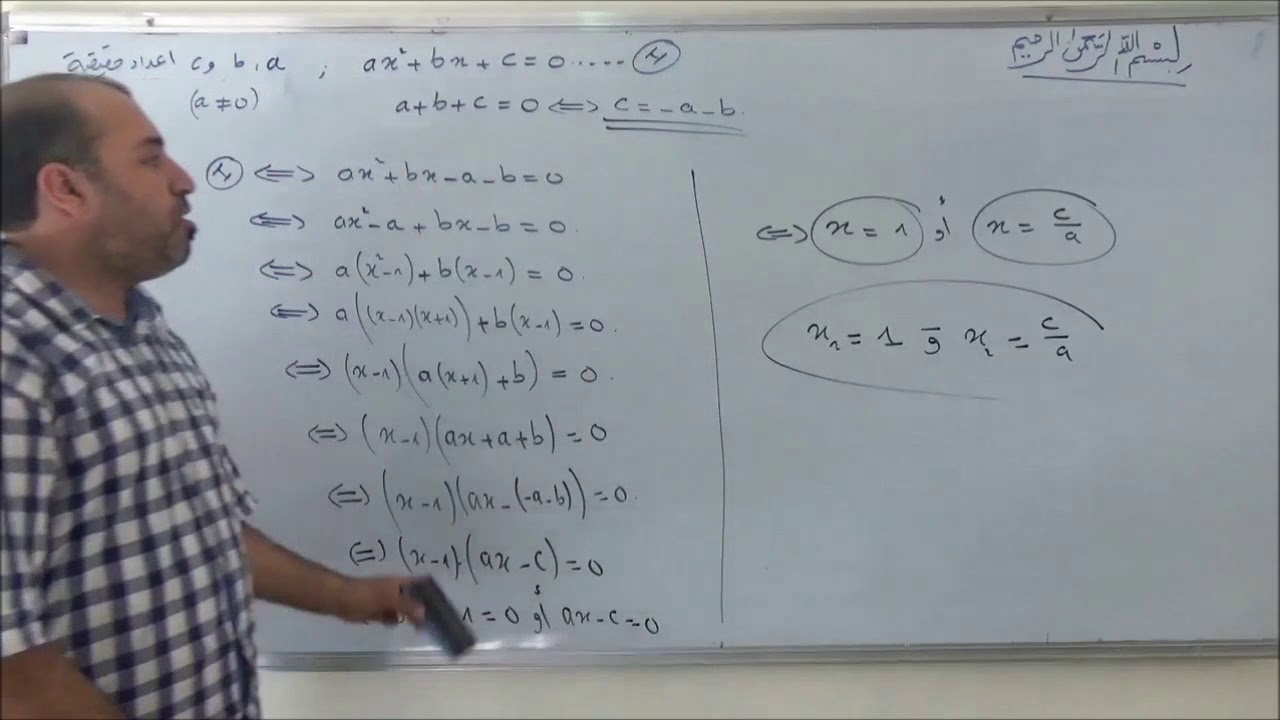 بسم الله الرحمن الرحيم
ax² + bx + c = 0 ..... ; a ، b و c اعداد حقيقية
(a ≠ 0) a + b + c = 0 ⟺ c = -a - b.
⟺ ax² + bx - a - b = 0
⟺ ax² - a + bx - b = 0.
⟺ a(x² - 1) + b(x - 1) = 0.
⟺ a((x-1)(x+1)) + b(x-1) = 0.
⟺ (x-1)(a(x+1) + b) = 0.
⟺ (x-1)(ax + a + b) = 0
⟺ (x-1)(ax - (-a-b)) = 0.
⟺ (x-1)(ax - c) = 0
1 = 0 أو ax - c = 0
⟺ x = 1 أو x = c/a
x₁ = 1 و x₂ = c/a